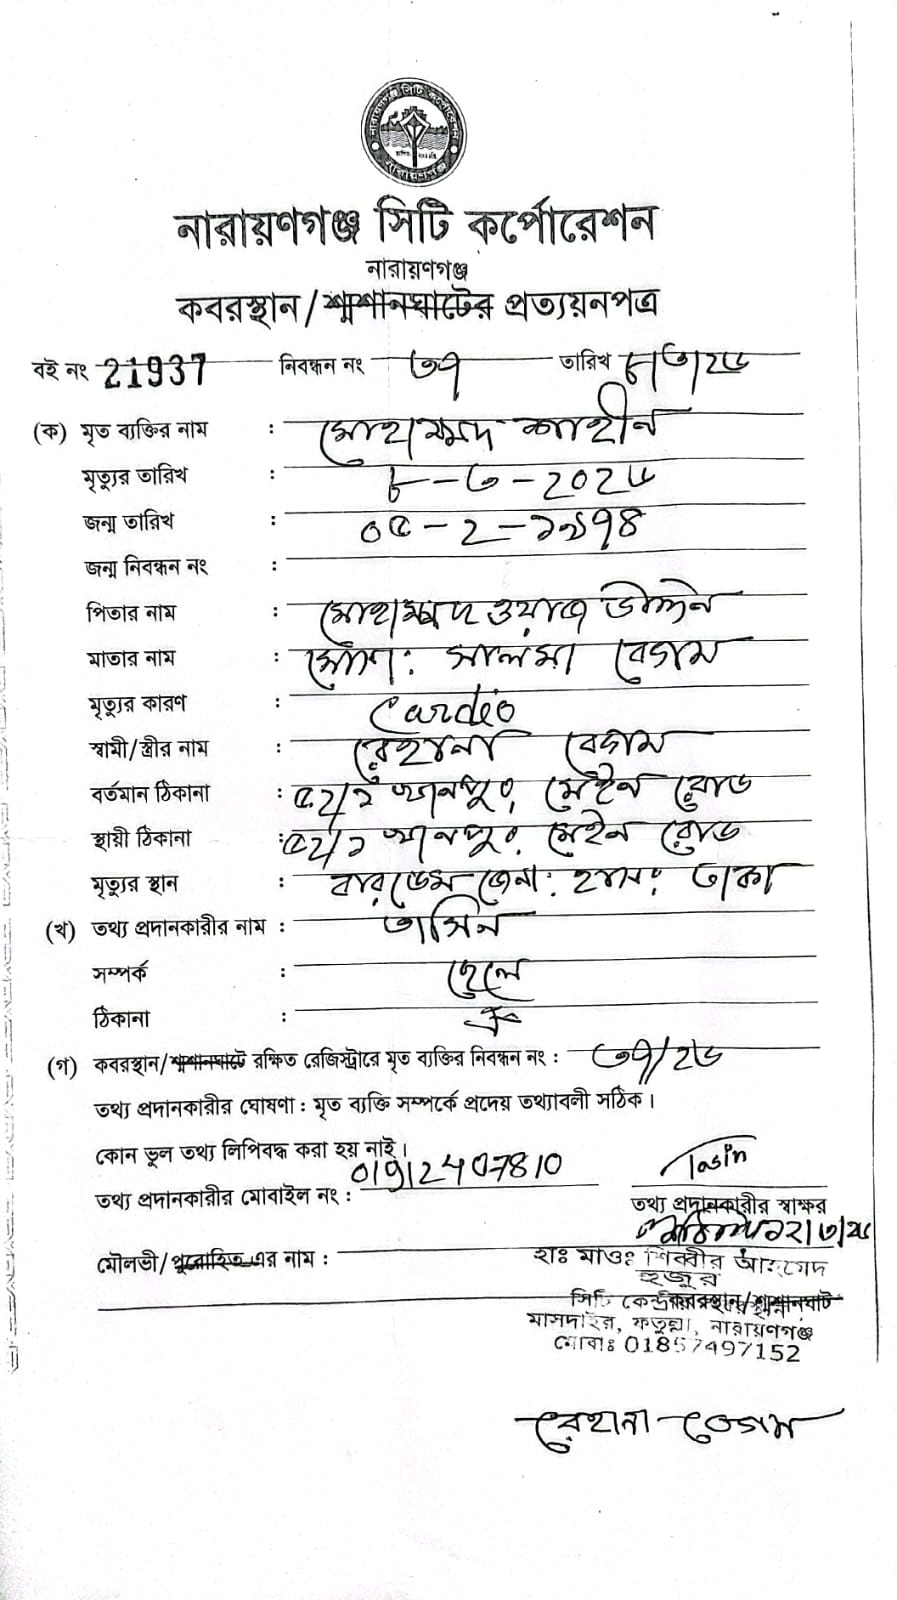 নারায়ণগঞ্জ সিটি কর্পোরেশন
নারায়ণগঞ্জ
নারায়ণগঞ্জ সিটি কর্পোরেশন
নারায়ণগঞ্জ
কবরস্থান/শ্মশানঘাটের প্রত্যয়নপত্র
বই নং 21937 নিবন্ধন নং ৩৭ তারিখ ৮/৩/২৬
(ক) মৃত ব্যক্তির নাম : মোহাম্মদ শাহীন
মৃত্যুর তারিখ : ৮-৩-২০২৬
জন্ম তারিখ : ০৫-২-১৯৭৪
জন্ম নিবন্ধন নং :
পিতার নাম : মোহাম্মদ ওয়াজ উদ্দিন
মাতার নাম : মোসা: সালমা বেগম
মৃত্যুর কারণ : Cardio
স্বামী/স্ত্রীর নাম : রেহানা বেগম
বর্তমান ঠিকানা : ৫২/১ খানপুর, মেইন রোড
স্থায়ী ঠিকানা : ৫২/১ খানপুর, মেইন রোড
মৃত্যুর স্থান : বারডেম জেনা: হাস: ঢাকা
(খ) তথ্য প্রদানকারীর নাম : তাসিন
সম্পর্ক : ছেলে
ঠিকানা : ঐ
(গ) কবরস্থান/শ্মশানঘাটে রক্ষিত রেজিস্ট্রারে মৃত ব্যক্তির নিবন্ধন নং : ৩৭/২৬
তথ্য প্রদানকারীর ঘোষণা : মৃত ব্যক্তি সম্পর্কে প্রদেয় তথ্যাবলী সঠিক।
কোন ভুল তথ্য লিপিবদ্ধ করা হয় নাই।
তথ্য প্রদানকারীর মোবাইল নং : 01912407810
Tasin
তথ্য প্রদানকারীর স্বাক্ষর
মৌলভী/পুরোহিত এর নাম :
হাঃ মাওঃ শিব্বীর আহমেদ
হুজুর
কবরস্থান/শ্মশানঘাট
সিটি কেন্দ্রীয়
মাসদাইর, ফতুল্লা, নারায়ণগঞ্জ
মোবাঃ 01857497152
রেহানা বেগম